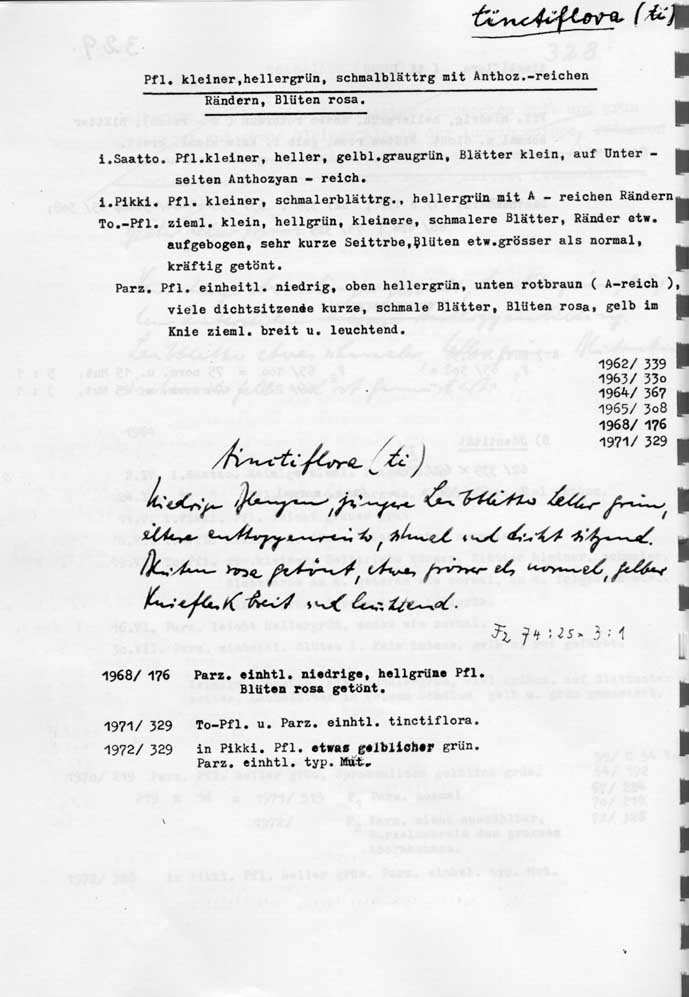 tinctiflora (ti)
Pfl. kleiner,hellergrün, schmalblättrg mit Anthoz.-reichen
Rändern, Blüten rosa.
i.Saatto. Pfl.kleiner, heller, gelbl.graugrün, Blätter klein, auf Unter -
seiten Anthozyan - reich.
i.Pikki. Pfl. kleiner, schmalerblättrg., hellergrün mit A - reichen Rändern
To.-Pfl. zieml. klein, hellgrün, kleinere, schmalere Blätter, Ränder etw.
aufgebogen, sehr kurze Seittrbe,Blüten etw.grösser als normal,
kräftig getönt.
Parz. Pfl. einheitl. niedrig, oben hellergrün, unten rotbraun ( A-reich ),
viele dichtsitzende kurze, schmale Blätter, Blüten rosa, gelb im
Knie zieml. breit u. leuchtend.
1962/ 339
1963/ 330
1964/ 367
1965/ 308
1968/ 176
1971/ 329
tinctiflora (ti)
Niedrige Pflanzen, jüngere Laubblätter heller grün,
ältere anthozyanreich, schmal und dicht sitzend.
Blüten rosa getönt, etwas grösser als normal, gelber
Kniefleck breit und leuchtend.
F2 74 : 25 = 3 : 1
1968/ 176 Parz. einhtl. niedrige, hellgrüne Pfl.
Blüten rosa getönt.
1971/ 329 To-Pfl. u. Parz. einhtl. tinctiflora.
1972/ 329 in Pikki. Pfl. etwas gelblicher grün.
Parz. einhtl. typ. Mut.